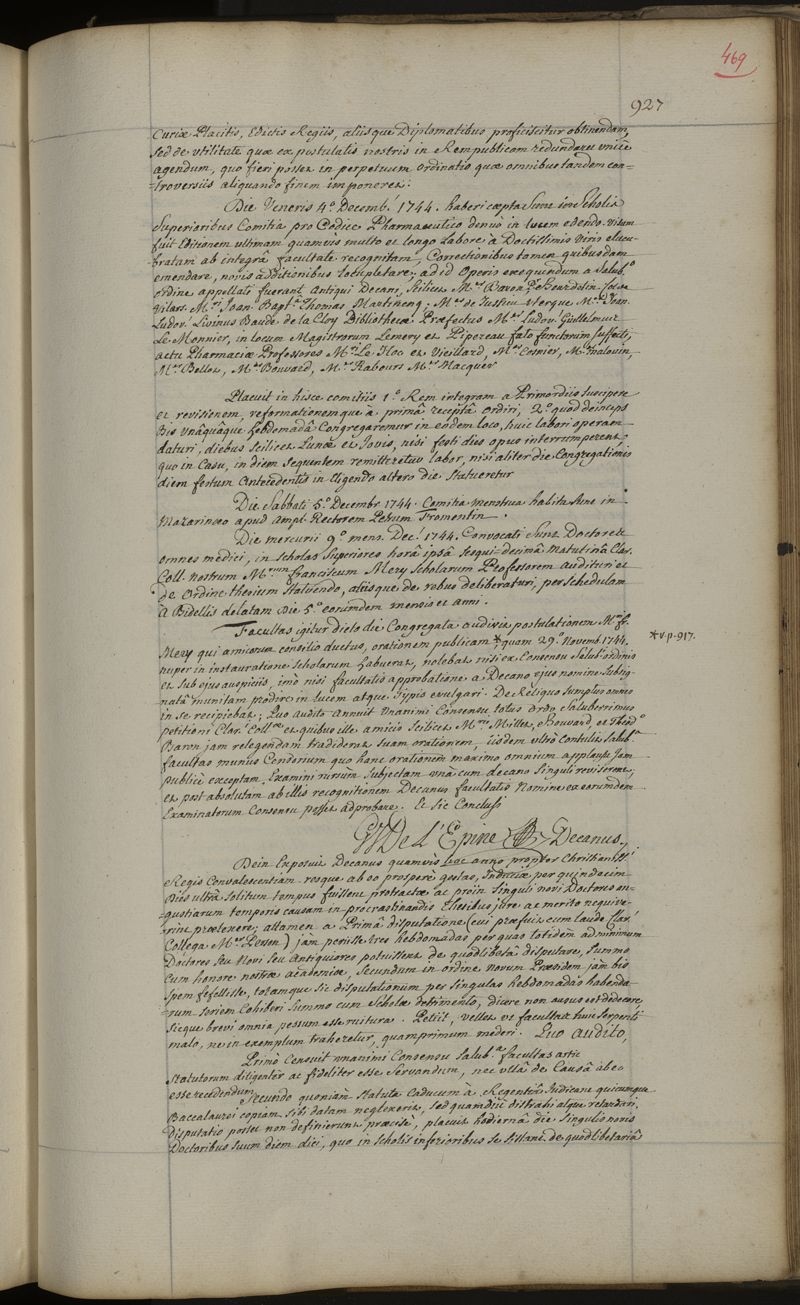 469
927
Curiæ Placitis, Edictis Regiis, aliisque Diplomatibus proficiscitur obtinendam,
sed de utilitate quæ ex postulatis nostris in Rempublicam redundaret unice
agendum, quo fieri posset in perpetuum ordinatio quæ omnibus tandem con-
-troversiis aliquando finem imponeret.
Die Veneris 4.º Decemb. 1744. haberi cæpta sunt in Scholis
Superioribus Comitia pro Codice Pharmaceutico denuò in lucem edendo. Visum
fuit Editionem ultimam quamvis multo et longo Labore à Doctissimis Viris elucu-
-bratam ab integrâ facultate recognitam, Correctionibus tamen quibusdam
emendare, novis additionibus locupletare; ad id Operis exequendum a Salub.º
ordine appellati fuerant Antiqui Decani, Scilicet M.er Baron, Bourdelin, Col de
Vilars. M.ri Joan. Bapt.ª Thomas Martinencq; M.er de Jussieu uterque M.er Joan.
Ludov. Livinus Baude de la Cloy Bibliothecæ Præfectus M.er Ludov. Guillelmus
Le Monnier, in locum Magistrorum Lemery et Pipereau fato functorum suffecti,
actu Pharmaciæ Professores M.ri Le Hoc et Vieillard, M.er Cosnier, M.er Malouin,
M.er Bellot, M.er Bouvard, M.er Rabours M.er Macquer
Placuit in hisce comitiis 1.º Rem integram a Primordiis suscipere
et revisionem, reformationemque à primâ receptâ ordiri, 2.º quod deinceps
Bis unâquâque hebdomadâ Congregaremur in eodem loco, huic labori operam
daturi, diebus scilicet Lunæ et Jovis, nisi festi dies opus interrumperent,
quo in Casu, in diem sequentem remitteretur labor, nisi aliter die Congregationis
diem festum Antecedentis in eligendo altero die Statueretur
Die Sabbati 5.º Decembr 1744. Comitia menstrua habita sunt in
Mazarineo apud Ampl. Rectorem Petrum Fromentin.
Die mercurii 9.º mens. Dec.! 1744. Convocati sunt Doctores
omnes medici, in scholas Superiores horâ ipsâ sesqui-decimâ Matutinâ Clar.
Coll. nostrum M.rum franciscum Mery Scholarum Professorem audituri et
de Ordine thesium Statuendo, aliisque de rebus deliberaturi, per schedulam
a Bidellis delatam Die 5.º eorumdem mensis et anni.
Facultas igitur dicto die Congregata auditis postulationem M.ri fr.
Mery qui amicorum consilio ductus, orationem publicam * quam 29.º Novemb. 1744.
*v.p.917.
nuper in instauratione Scholarum habuerat, nolebat nisi ex Consensu Salub. ordinis
et sub ejus auspiciis, imò nisi facultatis approbatione a Decano ejus nomine subsig-
natâ munitam prodire in lucem atque typis evulgari. De Reliquo Sumptus omnes
in se recipiebat; Quo audito annuit Unanimi Consensu totus Ordo Saluberrimus
petitioni Clar.i Coll.æ et quibus ille amicis Scilicet M.ris Millet, Bouvard, et Theod.º
Baron jam relegendam tradiderat suam orationem, iisdem ultrò contulit Salub.ª
facultas munus Censorum quo hanc orationem maximo omnium applausu jam
publicè exceptam, Examini rursum Subjectam unà cum decano Singuli reviserent;
et post absolutam ab illis recognitionem Decanus facultatis Nomine ex eorumdem
Examinatorum Consensu posset adprobare. Et sic Conclusi
G J De L'Epine Decanus.
Dein Exposuit Decanus quamvis hoc anno propter Christianiss.!
Regis Convalescentiam resque ab eo prosperè gestas, Judiciæ per quindecim
Dies ultrâ Solitum tempus fuissent protractæ ac proin Singuli novi Doctores an-
-gustiarum temporis causam in procrastinandis Thesibus jure ac merito nequive-
-rint prætexere; attamen a Primâ disputatione (cui præfuit cum laude Clar.!
Collega M.er Person) jam periisse tres hebdomadas per quas totidem adminimum
Doctores seu Novi seu Antiquiores potuissent de quodlibetâ disputare, Summo
Cum honore nostræ academiæ, Secundum in ordine Novum Præsidem jam bis
Spem fefellisse, totamque sic disputationum per singulas hebdomadas habenda-
-rum seriem Cohiberi Summo cum Scholæ detrimento, dicere non ausus est dedecore,
sicque brevi omnia pessum esse ruitura. Petiit, Vellet ut facultas huic serpenti
malo, ne in exemplum traheretur, quamprimum mederi. Quo audito,
Primò Censuit Unanimi Consensu Salub.ª facultas artic
Statutorum diligenter ac fideliter esse Servandum, nec ullâ de Causâ ab eo
esse recedendum.
Secundò quoniam Statuta Caducum à Regentiâ Judicant quicumque
Baccalaurei copiam sibi datam neglexerit, sed quamdiù distrahi atque retardari
disputatio posset non definierunt præcisè, placuit hodiernâ die Singulis novis
Doctoribus suum diem dici, quo in scholis inferioribus se sistant de quodlibetariâ